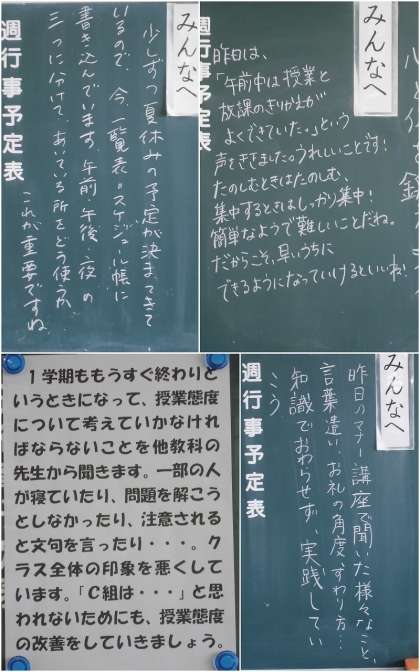 みんなへ
少しずつ夏休みの予定が決まってきて
いるので、今、一覧表。スケジュール帳に
書き込んでいます。午前 午後 夜 の
三つに分けて、あいている所をどう使うか
これが重要ですね
週行事予定表
みんなへ
週行事予定表
昨日は、
「午前中は授業と
放課のきりかえが
よくできていた。」という
声をききました。うれしいことです!
たのしむときはたのしむ、
集中するときはしっかり集中!
簡単なようで難しいことだね。
だからこそ、早いうちに
できるようになっていけるといいね!
1学期ももうすぐ終わりと
いうときになって、授業態度
について考えていかなけれ
ばならないことを他教科の
先生から聞きます。一部の人
が寝ていたり、問題を解こう
としなかったり、注意される
と文句を言ったり・・・。ク
ラス全体の印象を悪くして
います。「C組は・・・」と思
われないためにも、授業態度
の改善をしていきましょう。
みんなへ
昨日のマナー講座で聞いた様々なこと、
言葉遣い、お礼の角度、すわり方…
知識でおわらせず、実践してい
こう
週行事予定表